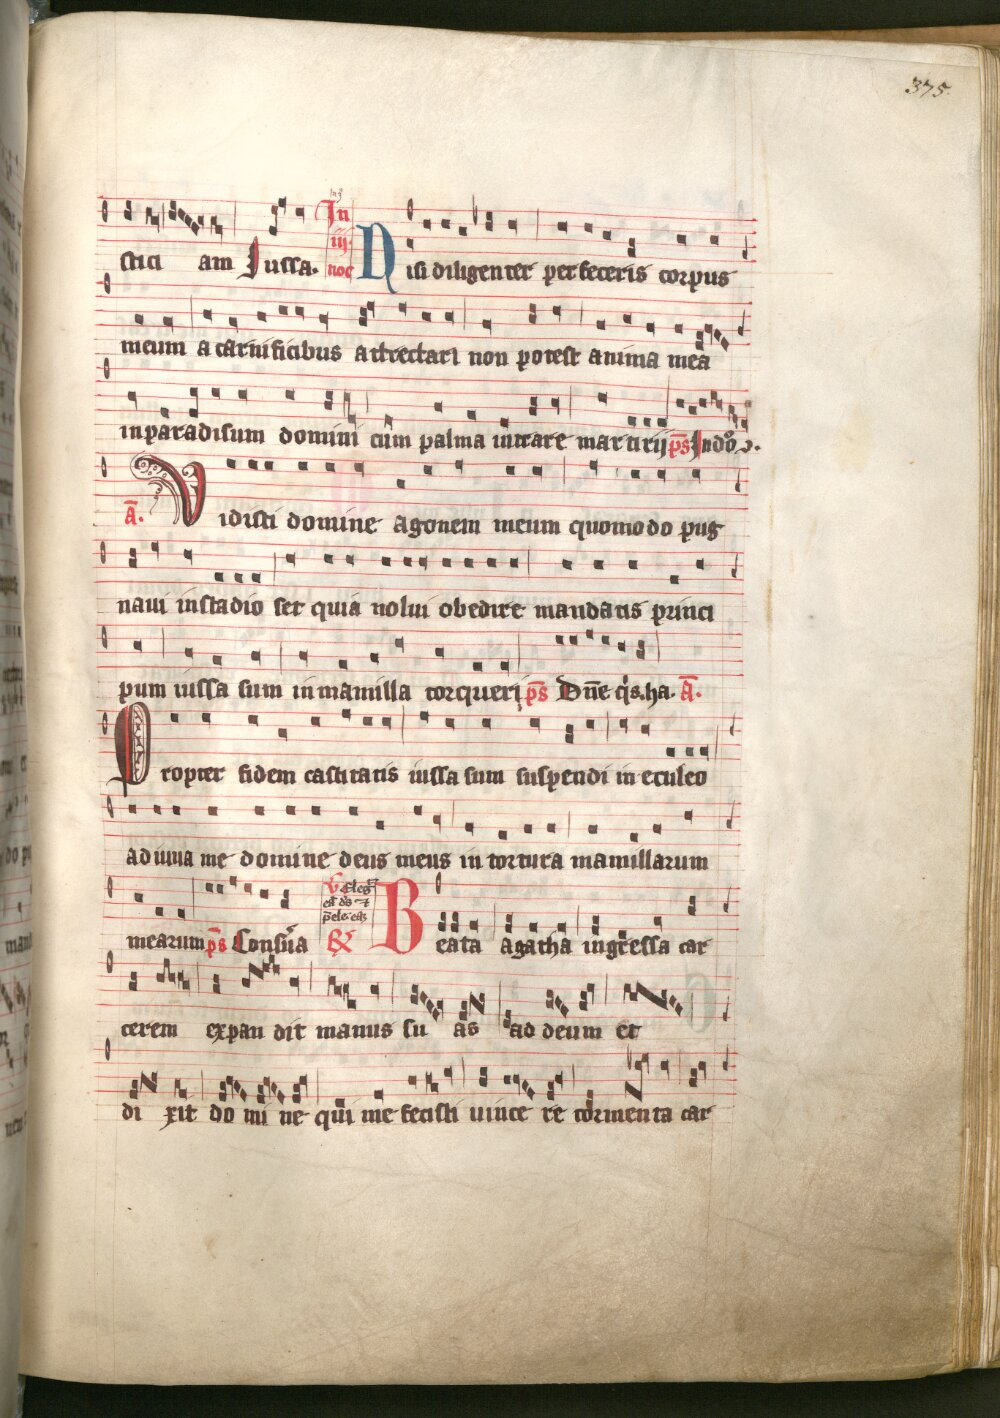 375.
stici am Iussa. In iij. noc Nisi diligenter perfeceris corpus
meum a carnificibus attrectari non potest anima mea
in paradisum domini cum palma intrare martirij ps In dño
A. Vidisti domine agonem meum quomodo pug
naui in stadio set quia nolui obedire mandatis princi
pum iussa sum in mamilla torqueri ps Dñe q's. ha. A.
Propter fidem castitatis iussa sum suspendi in eculeo
adiuua me domine deus meus in tortura mamillarum
mearum ps Beata agatha ingressa car
cerem expandit manus suas ad deum et
dixit domine qui me fecisti uincere tormenta car